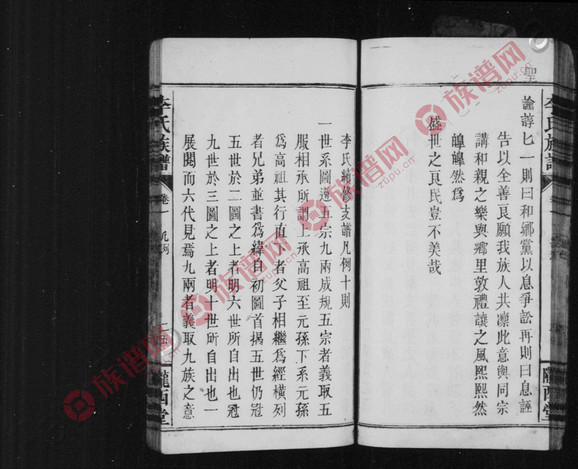 聖
諭諄匕一則曰和鄉黨以息爭訟再則曰息誣
告以全善良願我族人共凛此意與同宗
講和親之樂與鄉里敦禮讓之風熙熙然
皥皥然爲
盛世之良民豈不美哉
李氏族譜
卷一
隴西堂
李氏續修支譜凡例十則
一世系圖遵五宗九兩成規五宗者義取五
服相承所謂上承高祖至元孫下系元孫
爲高祖其行直下者父子相繼爲經橫列
者兄弟並書爲緯自初圖首揭五世仍冠
五世於二圖之上者明六世所自出也冠
九世於三圖之上者明十世所自出也一
展閱而六代見焉九兩者義取九族之意
李氏族譜
卷一 凡例
隴西堂
族谱网
zupu.cn